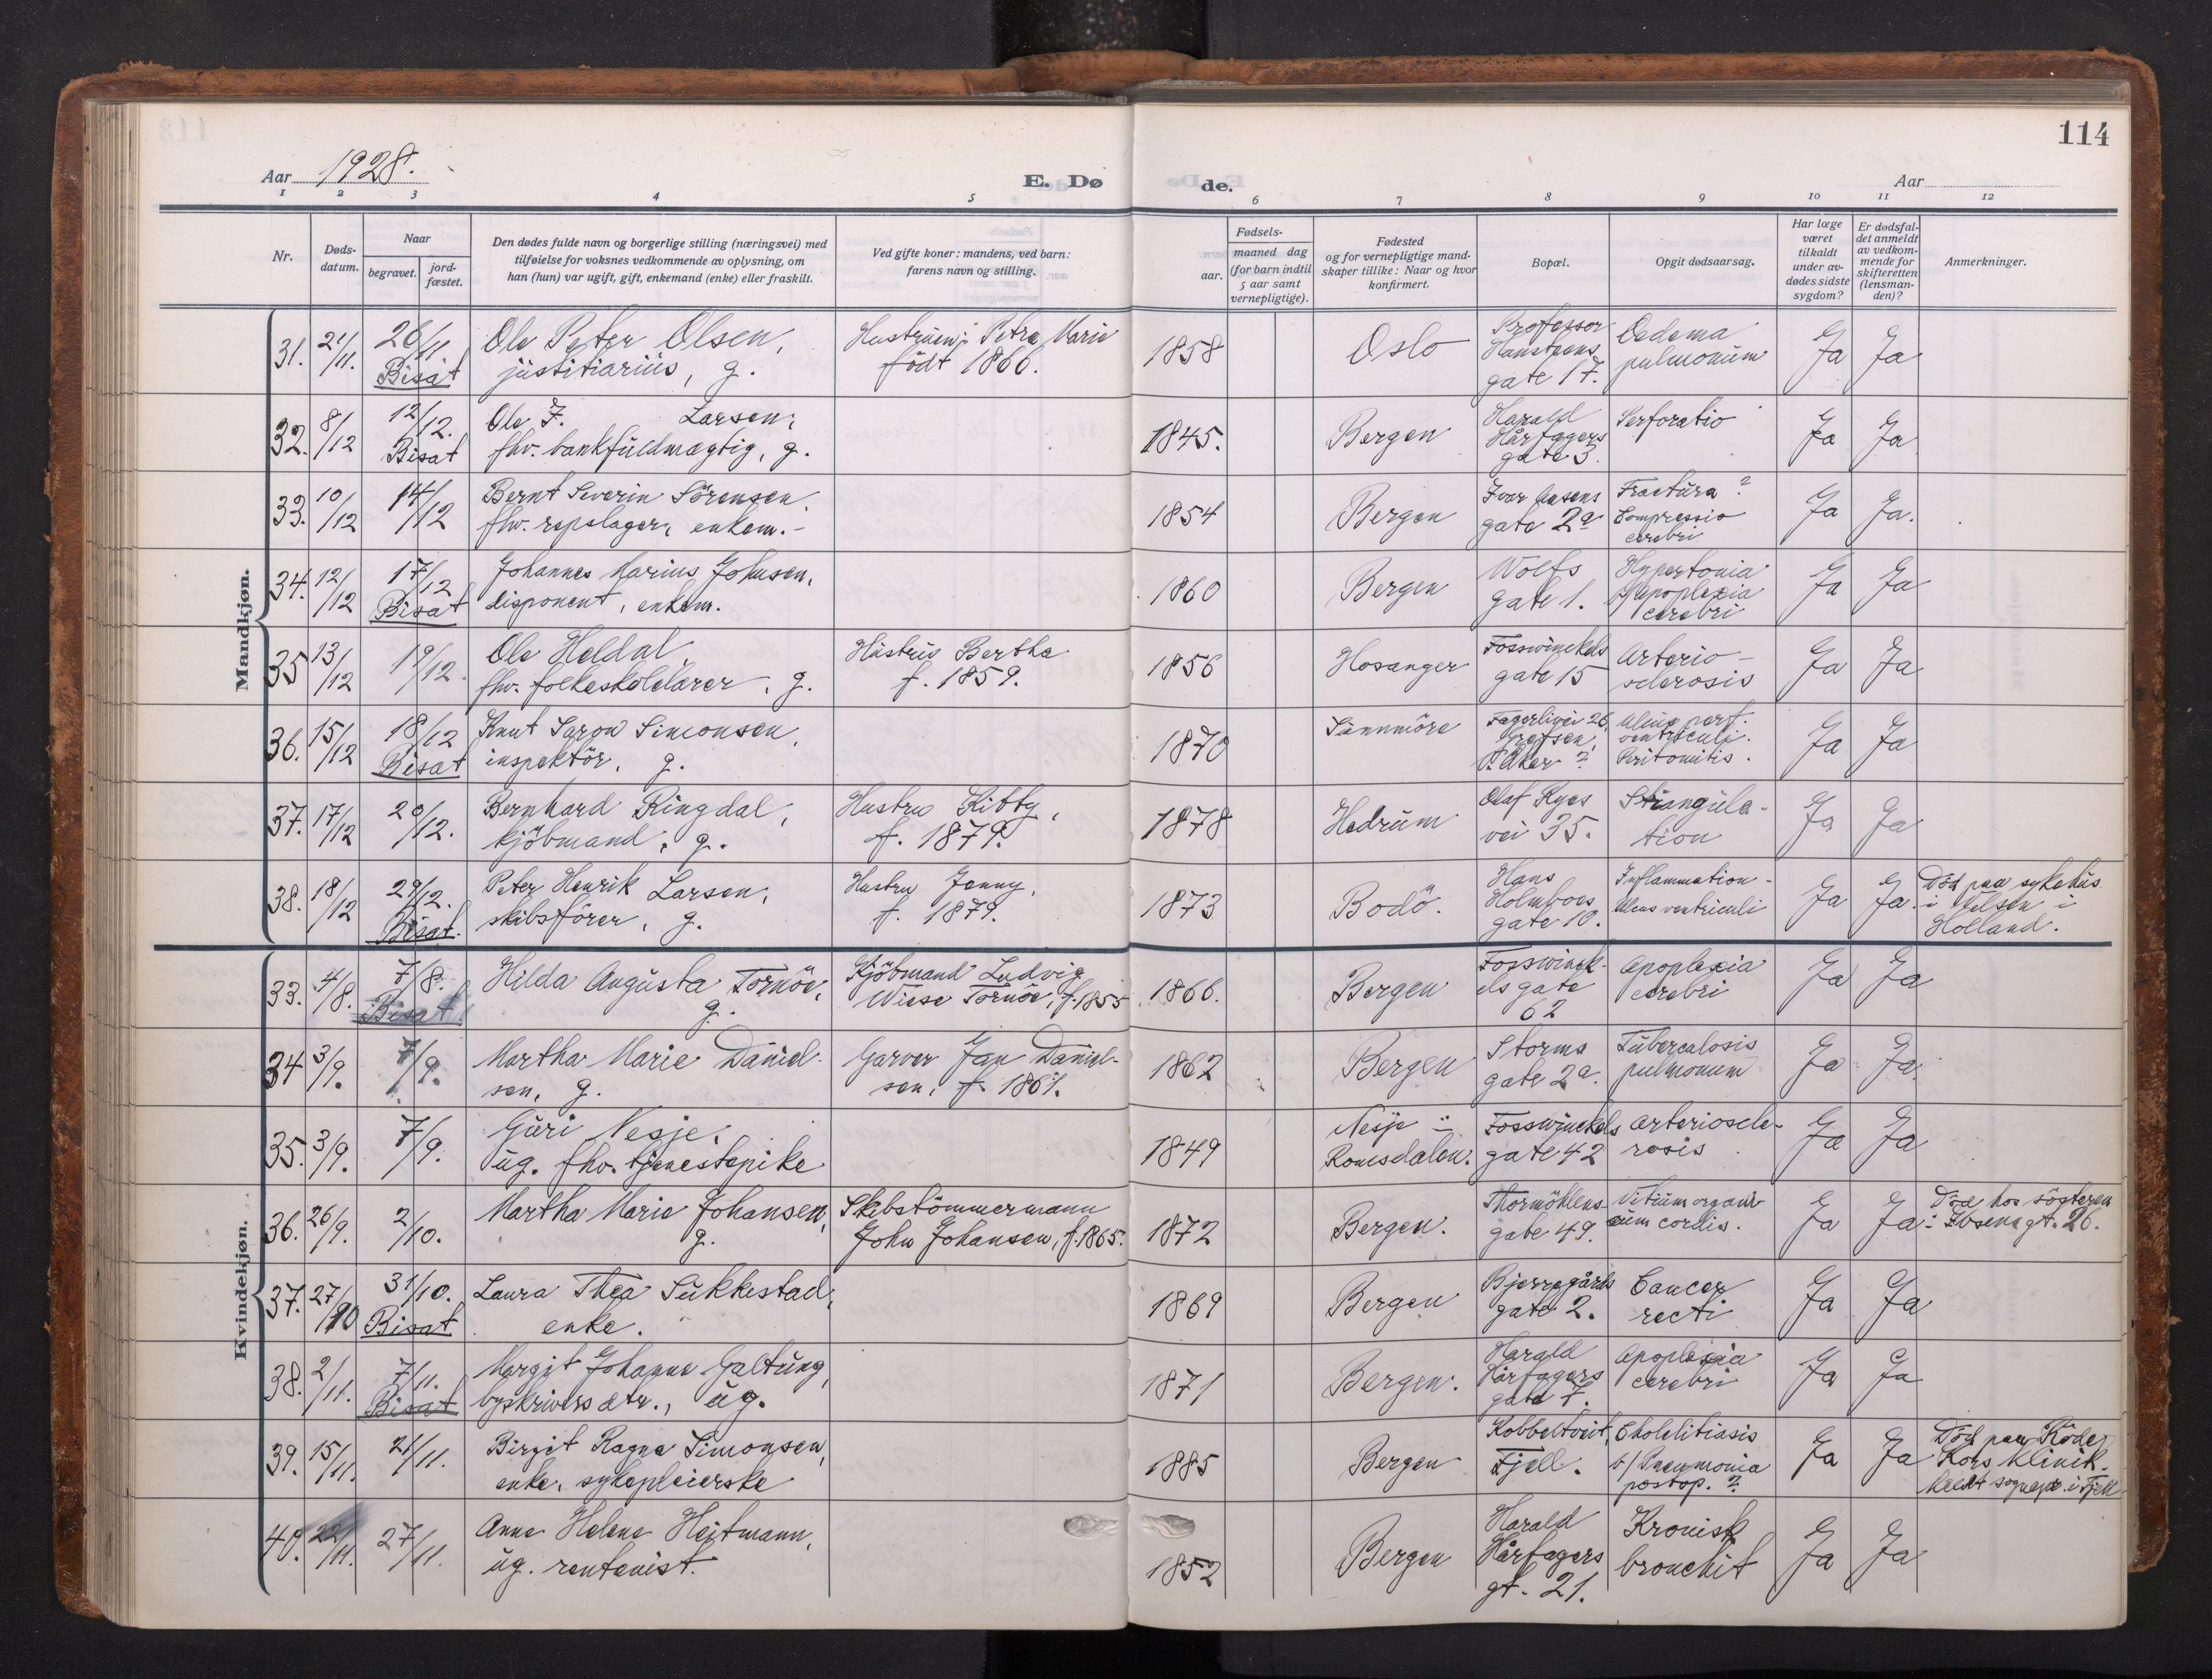 114
Aar 1928.
E. Dø
de.
Aar
1 2 3 4 5 6 7 8 9 10 11 12
Nr.
Døds-
datum.
Naar
begravet.
jord-
fæstet.
Den dødes fulde navn og borgerlige stilling (næringsvei) med
tilføielse for voksnes vedkommende av oplysning, om
han (hun) var ugift, gift, enkemand (enke) eller fraskilt.
Ved gifte koner: mandens, ved barn:
farens navn og stilling.
Fødsels-
aar.
maaned dag
(for barn indtil
5 aar samt
vernepligtige).
Fødested
og for vernepligtige mand-
skaper tillike: Naar og hvor
konfirmert.
Bopæl.
Opgit dødsaarsag.
Har læge
været
tilkaldt
under av-
dødes sidste
sygdom?
Er dødsfal-
det anmeldt
av vedkom-
mende for
skifteretten
(lensman-
den)?
Anmerkninger.
Mandkjøn.
31. 21/11. 26/11. Bisat
Ole Peter Olsen,
justitiarius, g.
Hustruen: Petra Marie
født 1866.
1858
Oslo
Professor
Hansteens
gate 17.
Oedema
pulmonum
Ja Ja
32. 8/12 12/12. Bisat
Ole J. Larsen,
fhv. bankfuldmægtig, g.
1845.
Bergen
Harald
Hårfagers
gate 3.
Perforatio
Ja Ja
33. 10/12 14/12
Bernt Severin Sörensen.
fhv. repslager, enkem. -
1854
Bergen
Ivar Aasens
gate 2a
Fractura ?
Compressio
cerebri
Ja Ja.
34. 12/12 17/12 Bisat
Johannes Marius Johnsen,
disponent, enkem.
1860
Bergen
Wolfs
gate 1.
Hypertonia
Apoplexia
cerebri
Ja Ja
35 13/12 19/12.
Ole Heldal,
fhv. folkeskolelærer, g.
Hustru Bertha
f. 1859.
1856
Hosanger
Fosswinckels
gate 15
Arterio-
sclerosis
Ja Ja
36. 15/12 18/12 Bisat
Knut Saron Simonsen,
inspektör, g.
1870
Sunnmöre
Fagerlivei 26,
Grefsen,
V. Aker ?
Ulcus perf.
ventriculi.
Peritonitis.
Ja Ja
37. 17/12 20/12.
Bernhard Ringdal,
kjöbmand, g.
Hustru Kitty,
f. 1879.
1878
Hedrum
Olaf Ryes
vei 35.
Strangula-
tion
Ja Ja
38. 18/12 29/12. Bisat.
Peter Henrik Larsen,
skibsförer, g.
Hustru Jenny,
f. 1879.
1873
Bodö.
Hans
Holmboes
gate 10.
Inflammation-
Ulcus ventriculi
Ja Ja.
Död paa sykehus
i Velsen i
Holland.
Kvindekjøn.
33. 4/8. 7/8. Bisat
Hilda Augusta Tornöe,
g.
Kjöbmand Ludvig
Wiese Tornöe, f. 1855
1866.
Bergen
Fosswinck-
els gate
62
Apoplexia
cerebri
Ja Ja
34 3/9. 7/9.
Martha Marie Daniel-
sen, g.
Garver Jan Daniel-
sen, f. 1861.
1862
Bergen
Storms
gate 2a.
Tuberculosis
pulmonum
Ja Ja.
35. 3/9. 7/9.
Guri Nesje,
ug. fhv. tjenestepike
1849
Nesje i
Romsdalen.
Fosswinckels
gate 42
Arterioscle-
rosis
Ja Ja
36. 26/9. 2/10.
Martha Marie Johansen,
g.
Skibstömmermann
John Johansen, f. 1865.
1872
Bergen.
Thormöhlens
gate 49.
Vitium organi-
cum cordis.
Ja Ja
Död hos søsteren
i Ibsensgt. 26.
37. 27/10 31/10. Bisat
Laura Thea Sukkestad,
enke.
1869
Bergen
Bjerregårds
gate 2.
Cancer
recti
Ja Ja
38. 2/11. 7/11. Bisat
Margit Johanne Galtung,
byskrivers dtr., ug.
1871
Bergen.
Harald
Hårfagers
gate 7.
Apoplexia
cerebri
Ja Ja
39. 15/11. 21/11.
Birgit Ragna Simonsen,
enke, sykepleierske
1885
Bergen
Kobbeltveit,
Fjell.
Cholelitiasis
b/ Pneumonia
postop. ?
Ja Ja
Död paa Röde
Kors Klinik.
Meldt sognepr. i Fjell
40. 22/11. 27/11.
Anne Helene Heitmann,
ug. rentenist.
1852
Bergen
Harald
Hårfagers
gt. 21.
Kronisk
bronchit
Ja Ja